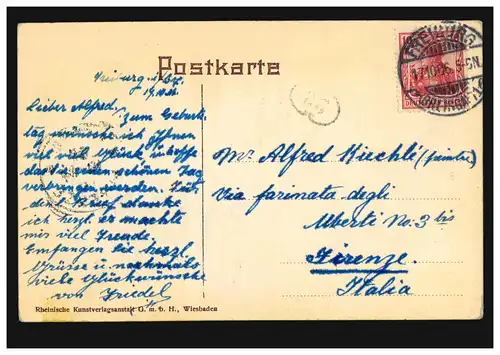 Postkarte
FREIBURG
Freiburg i/Br.
Lieber Alfred,
Zum Geburts
tag wünsche ich Ihnen
viel viel Glück, u. hoffe
das Sie einen schönen Tag
verbringen werden. Für
d. Brief danke
ich herzl. er machte
mir viel Freude.
Empfangen Sie herzl.
Grüsse u. nochmals
viele Glückwünsche
von Friedel
Mr Alfred Kiechlé (junior)
Via farinata degli
Uberti No: 3 bis
Firenze.
Italia
Rheinische Kunstverlagsanstalt G. m. b. H., Wiesbaden